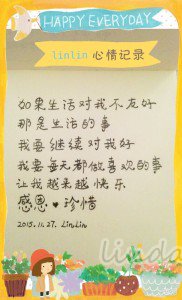 HAPPY EVERYDAY
linlin 心情记录
如果生活对我不友好
那是生活的事
我要继续对我好
我要每天都做喜欢的事
让我越来越快乐
感恩♥珍惜
2015.11.27. LinLin
linda